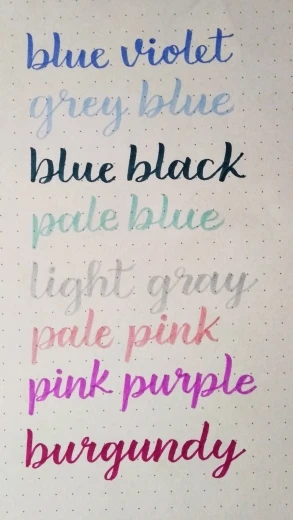 blue violet
grey blue
blue black
pale blue
light gray
pale pink
pink purple
burgundy